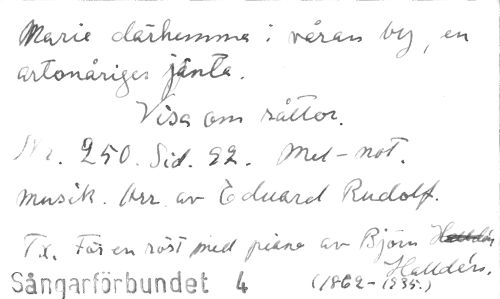 Marie därhemma i våran by, en
artonåriges jänta.
Visa om råttor.
Nr. 250. Sid. 92. Mel-not.
musik. Arr. av Eduard Rudolf.
Tx. För en röst med piano av Björn
Halldén.
Sångarförbundet 4 (1862-1935.)